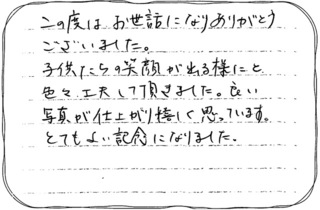 この度はお世話になりありがとう
ございました。
子供たちの笑顔が出る様にと
色々工夫して頂きました。良い
写真が仕上がり嬉しく思っています。
とてもよい記念になりました。